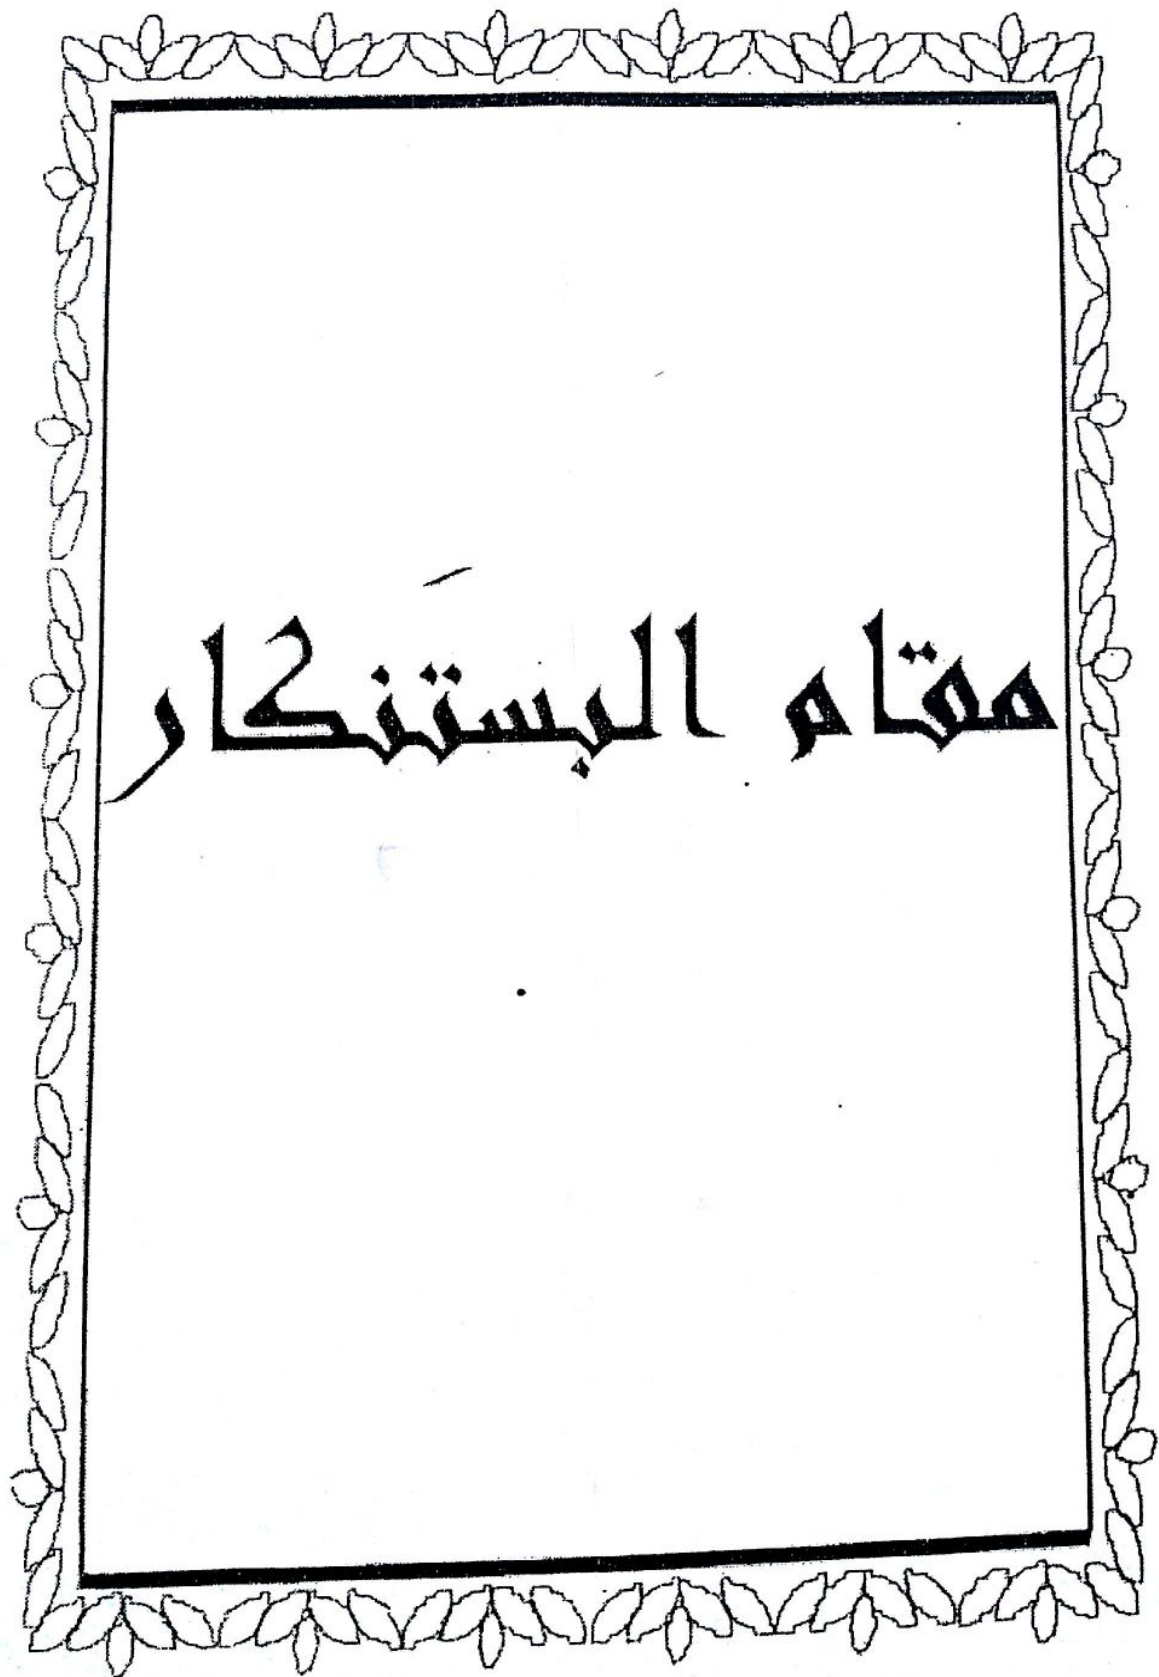 مقام البستَنكار